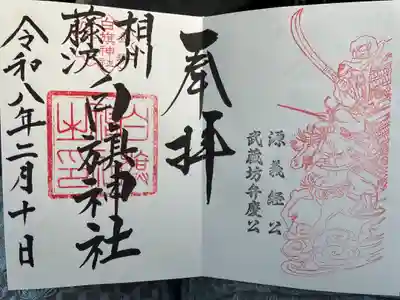 奉拝
源義経公
武蔵坊弁慶公
相州
藤沢
白旗神社
白旗神社
令和八年二月十日